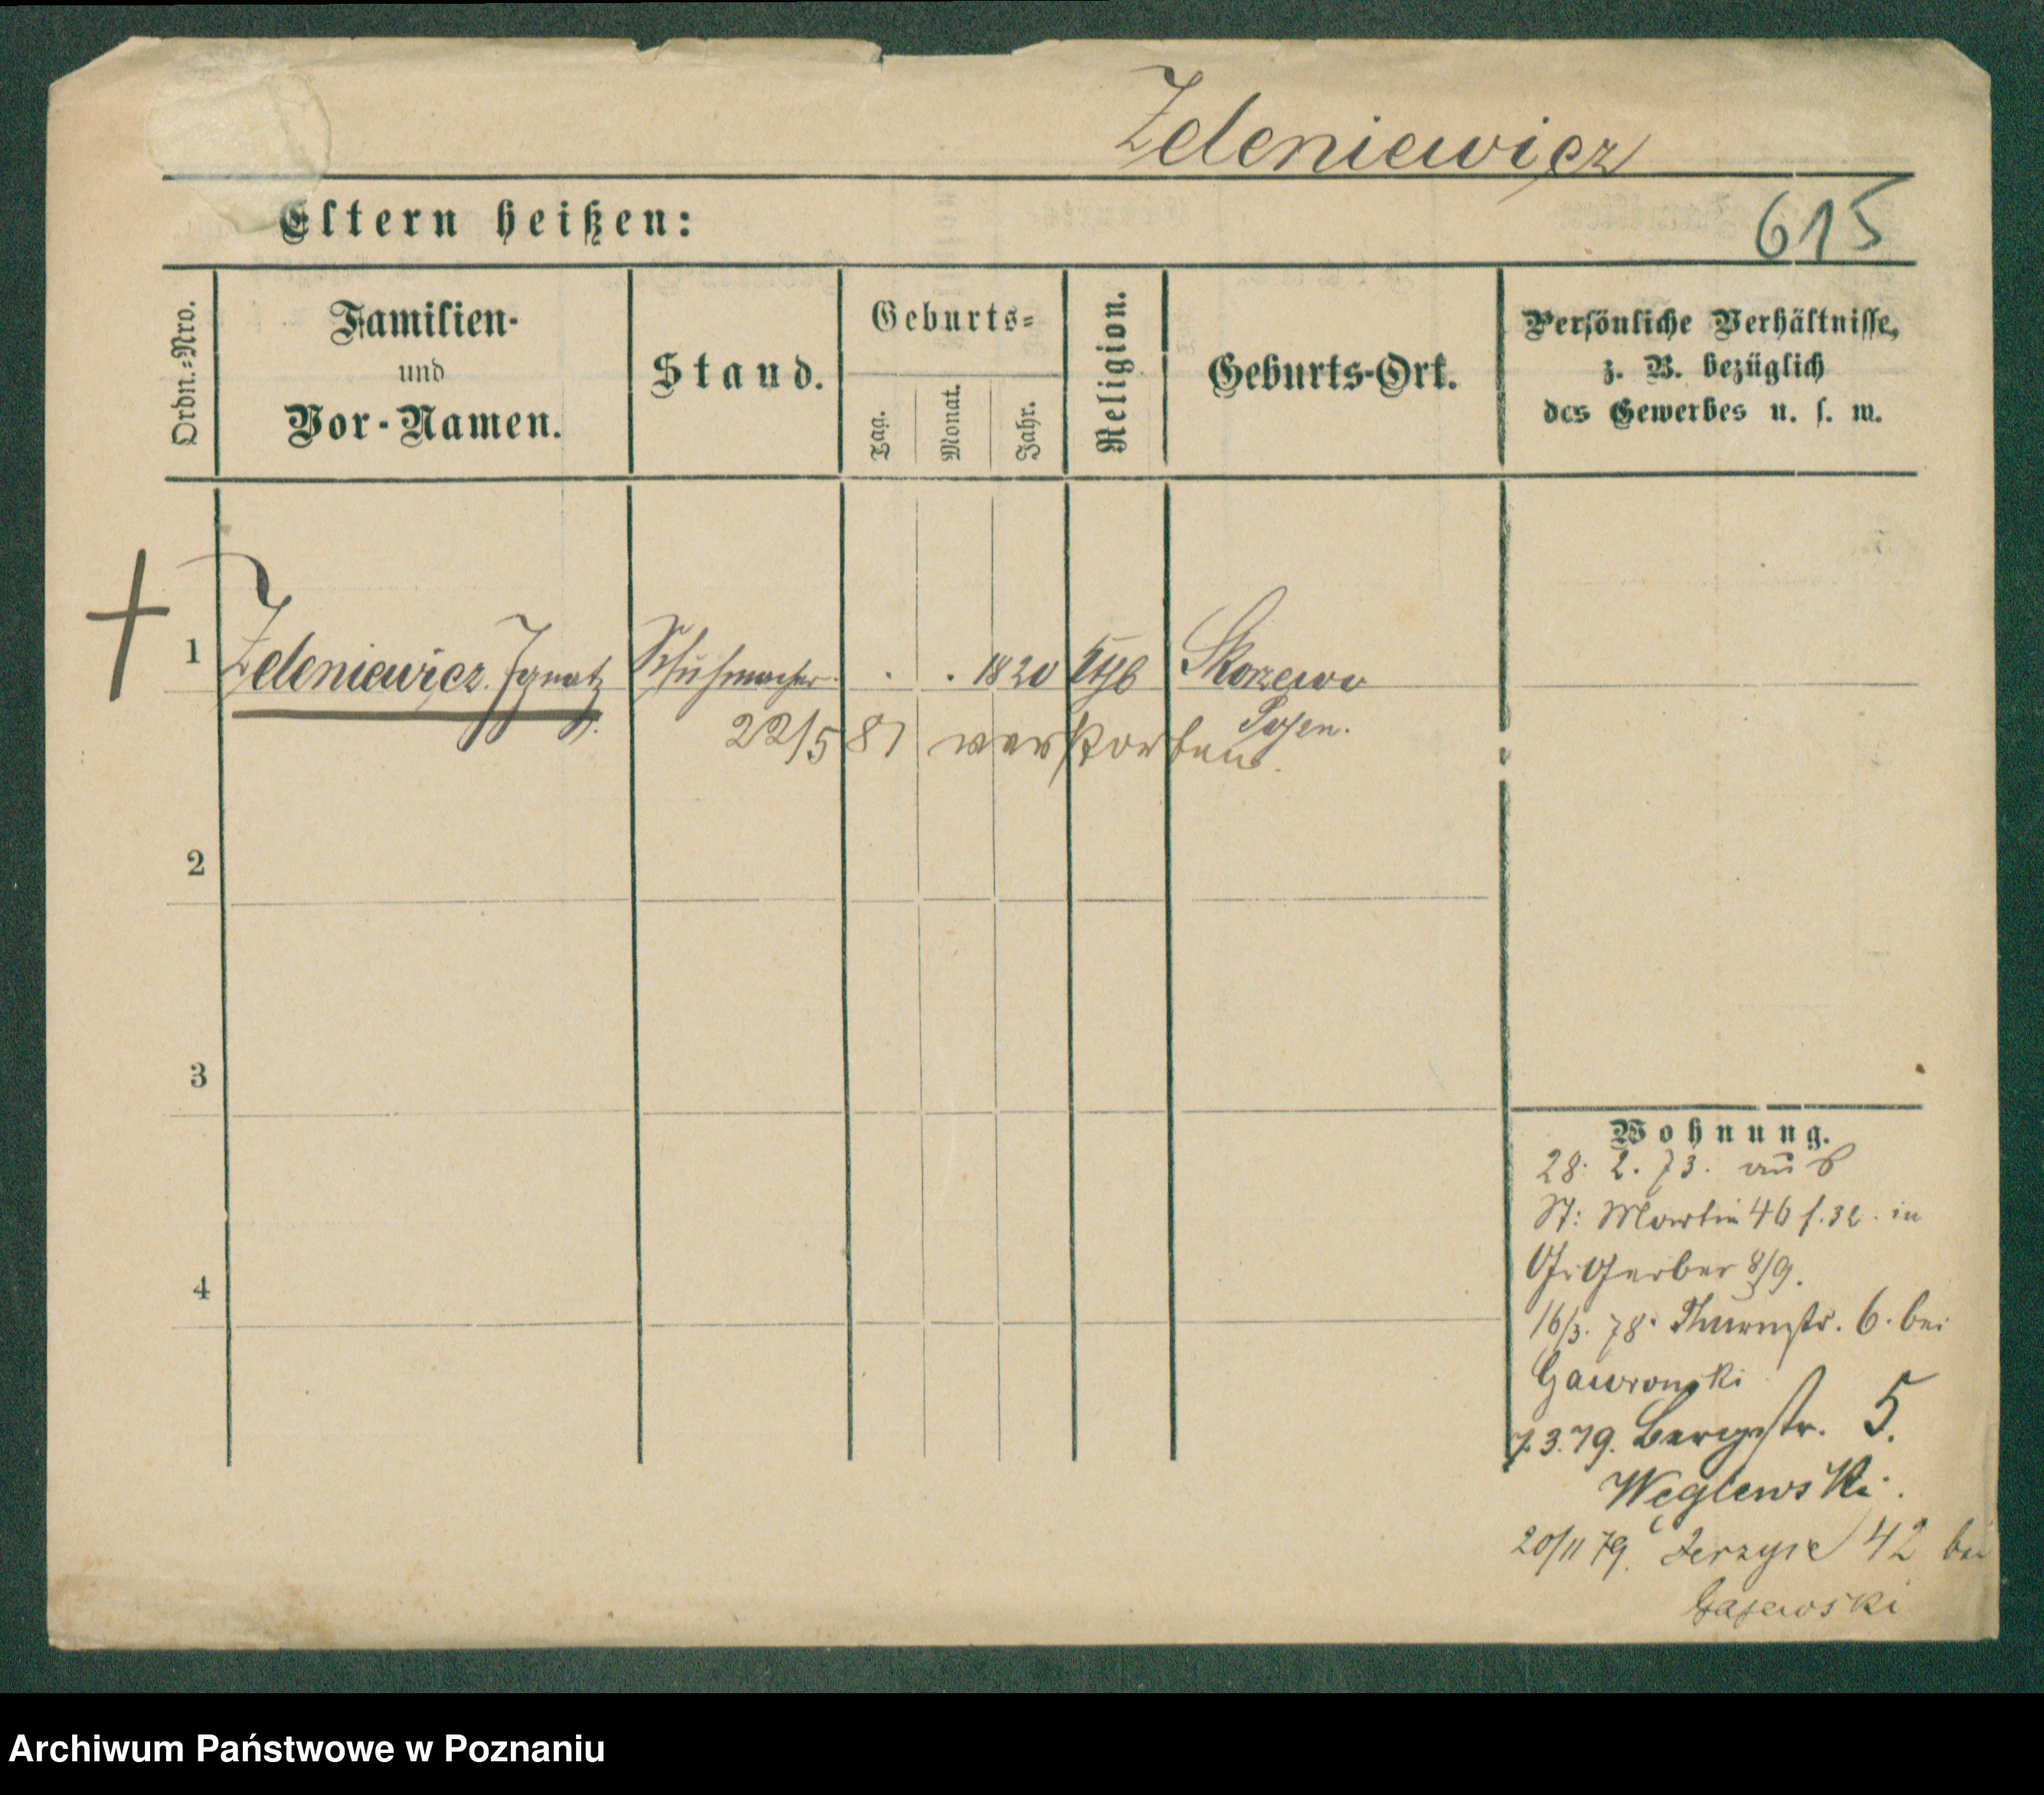 Zeleniewicz
Eltern heißen:
615
Ordn.=Nro.
Familien-
und
Vor-Namen.
Stand.
Geburts=
Tag.
Monat.
Jahr.
Religion.
Geburts-Ort.
Persönliche Verhältnisse,
z. B. bezüglich
des Gewerbes u. s. w.
†
1 Zeleniewicz Ignatz Schuhmacher . . 1820 kth Skorzewo
Posen.
22/5 81 verstorben.
2
3
4
Wohnung.
28. 2. 73. aus
St: Martin 46 f. 32. in
Gr. Gerber 8/9.
16/3. 78. Thurmstr. 6. bei
Gawronski
7. 3. 79. Bergstr. 5.
Węglewski.
20/11 79. Jerzyce 42 bei
Gajewski
Archiwum Państwowe w Poznaniu